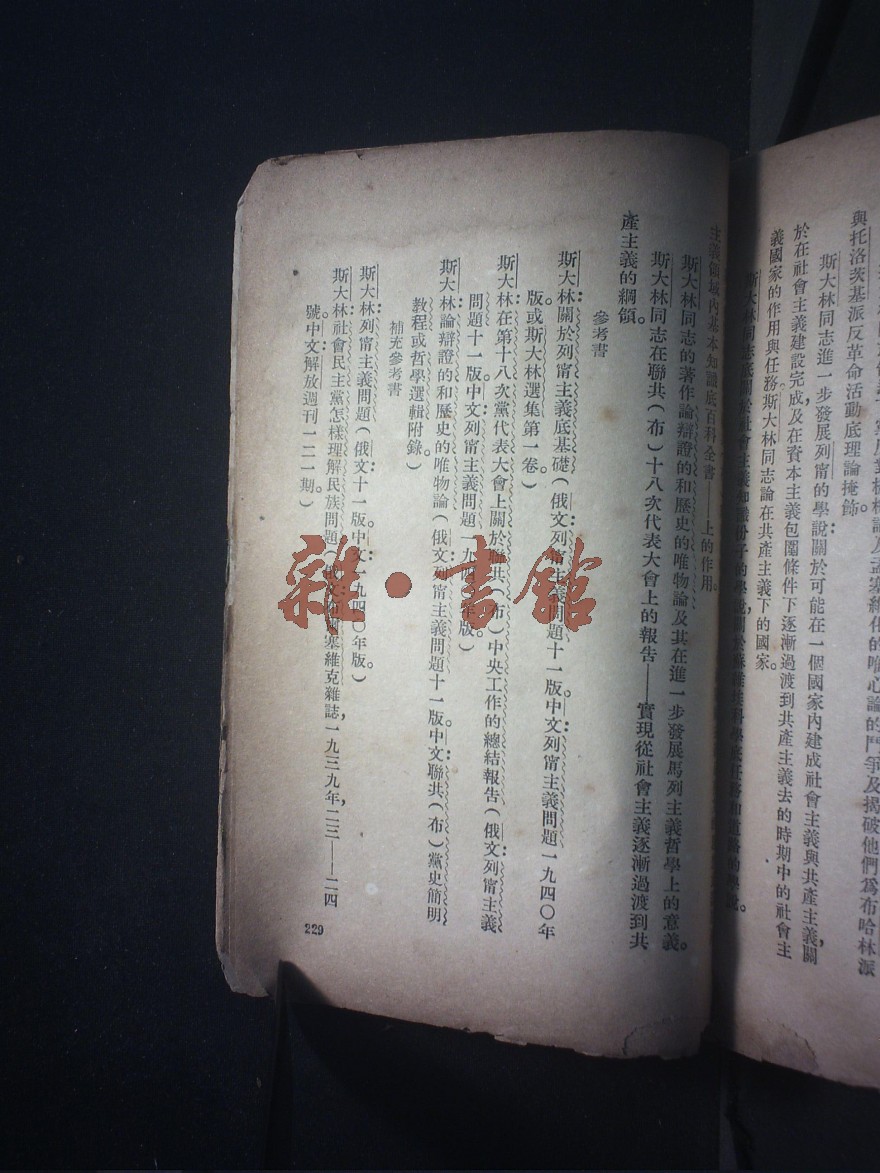 與托洛茨基派反革命活動底理論掩飾。
斯大林同志進一步發展列甯的學說關於可能在一個國家內建成社會主義與共產主義，關
於在社會主義建設完成及在資本主義包圍條件下逐漸過渡到共產主義去的時期中的社會主
義國家的作用與任務斯大林同志論在共產主義下的國家。
斯大林同志底關於社會主義知識份子的學說關於蘇維埃科學底任務和道路的學說。
主義領域內基本知識底百科全書——上的作用。
斯大林同志的著作論辯證的和歷史的唯物論及其在進一步發展馬列主義哲學上的意義。
斯大林同志在聯共（布）十八次代表大會上的報告——實現從社會主義逐漸過渡到共
產主義的綱領。
參考書
斯大林：關於列甯主義底基礎（俄文列甯主義問題十一版。中文列甯主義問題一九四〇年
版或斯大林選集第一卷。）
斯大林：在第十八次黨代表大會上關於聯共（布）中央工作的總結報告（俄文：列甯主義
問題十一版。中文：列甯主義問題一九四〇年版。）
斯大林：論辯證的和歷史的唯物論（俄文列甯主義問題十一版。中文：聯共（布）黨史簡明
教程或哲學選輯附錄。）
補充參考書
斯大林：列甯主義問題（俄文十一版。中文一九四〇年版。）
斯大林：社會民主黨怎樣理解民族問題（俄文：布爾塞維克雜誌，一九三九年，二三——二四
號。中文：解放週刊一二一期。）
229
雜·書館